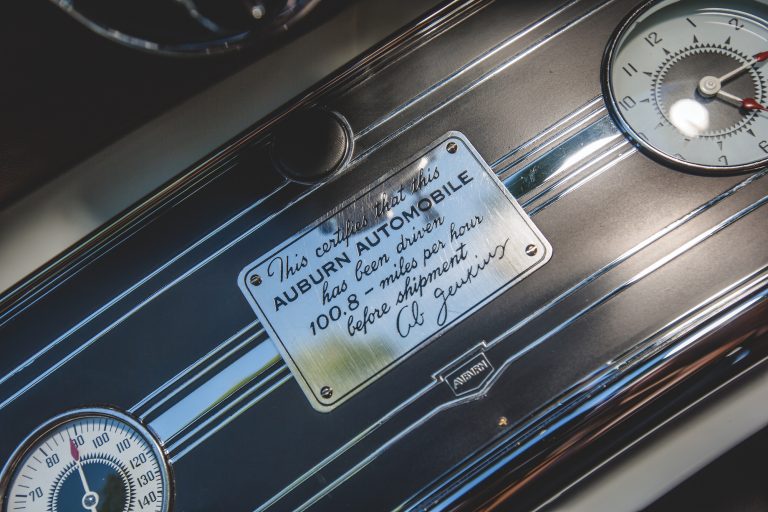 This certifies that this
AUBURN AUTOMOBILE
has been driven
100.8 - miles per hour
before shipment
Ab Jenkins
AUBURN
12
11
10
2
9
70
80
100
110
120
130
140